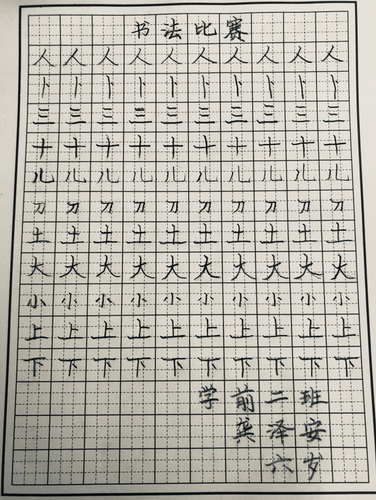 书法比赛
人人人人人人人人人人
卜卜卜卜卜卜卜卜卜卜
三三三三三三三三三三
十十十十十十十十十十
儿儿儿儿儿儿儿儿儿儿
刀刀刀刀刀刀刀刀刀刀
土土土土土土土土土土
大大大大大大大大大大
小小小小小小小小小小
上上上上上上上上上上
下下下下下下下下下下
学前二班
龚泽安
六岁